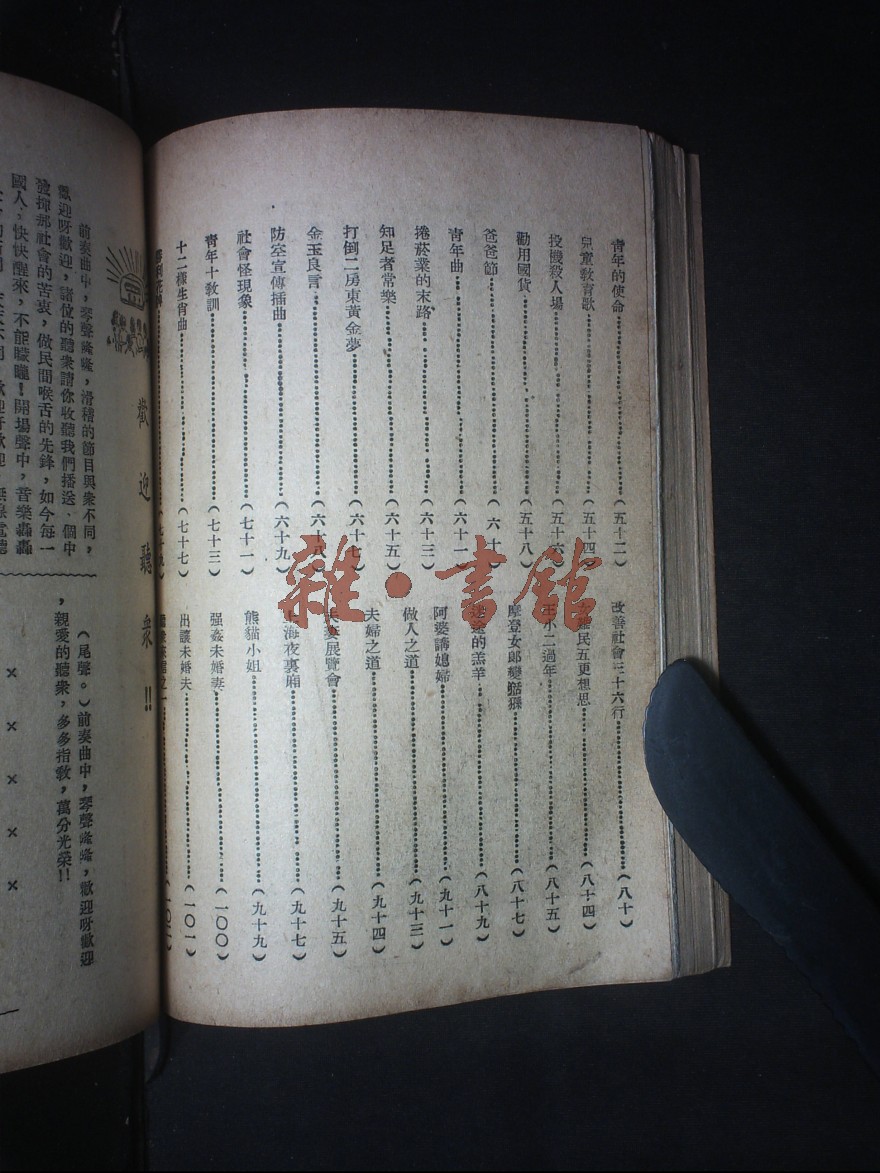 青年的使命……(五十二)
兒童教育歌……(五十四)
投機殺人場……(五十六)
勸用國貨……(五十八)
爸爸節……(六十)
青年曲……(六十一)
捲菸業的末路……(六十三)
知足者常樂……(六十五)
打倒二房東黃金夢……(六十七)
金玉良言……(六十八)
防空宣傳插曲……(六十九)
社會怪現象……(七十一)
青年十教訓……(七十三)
十二樣生肖曲……(七十七)
改善社會三十六行……(八十)
難民五更想思……(八十四)
年小二過年……(八十五)
摩登女郎變猢猻……(八十七)
途的羔羊……(八十九)
阿婆講媳婦……(九十一)
做人之道……(九十三)
夫婦之道……(九十四)
展覽會……(九十五)
海夜裏廂……(九十七)
熊貓小姐……(九十九)
强姦未婚妻……(一〇〇)
出讓未婚夫……(一〇一)
歡迎聽衆!!
前奏曲中,琴聲隆隆,滑稽的節目與衆不同,
歡迎呀歡迎,諸位的聽衆請你收聽我們播送、個中
發揮那社會的苦衷,做民間喉舌的先鋒,如今每一
國人,快快醒來,不能矇矓!開場聲中,音樂轟轟
(尾聲。)前奏曲中,琴聲隆隆,歡迎呀歡迎
,親愛的聽衆,多多指教,萬分光榮!!
×××××
雜·書館